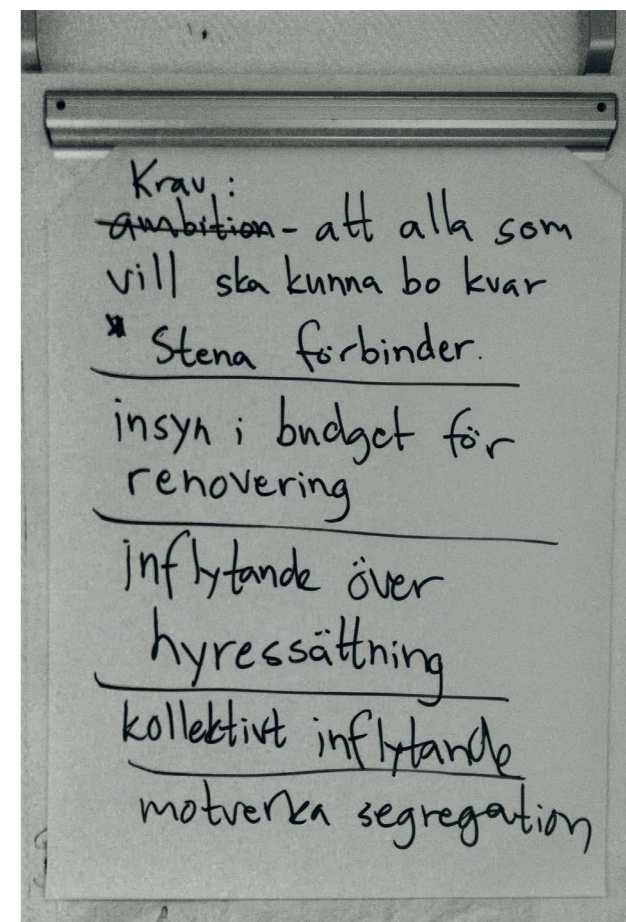 Krav:
ambition - att alla som
vill ska kunna bo kvar
* Stena förbinder.
insyn i budget för
renovering
inflytande över
hyressättning
kollektivt inflytande
motverka segregation